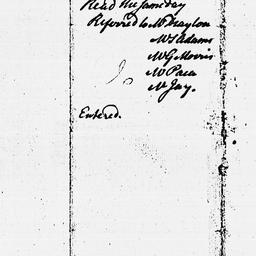 Read the same day
Referred to Mr Drayton
Mr S Adams
Mr G Morris
Mr Paca
Mr Jay.
Entered.